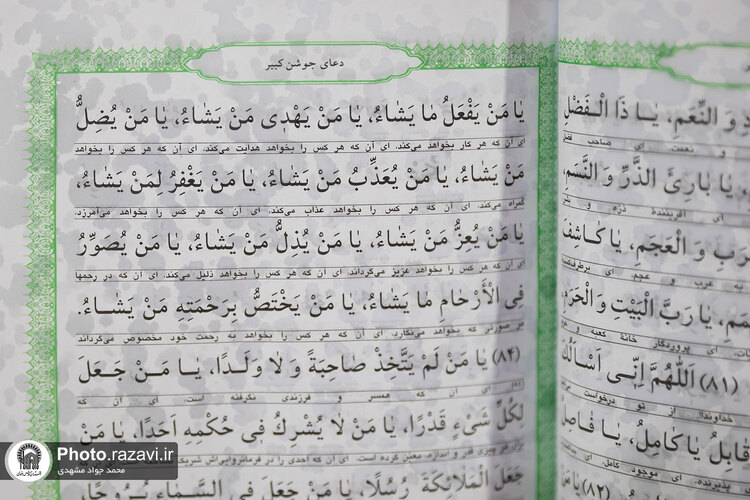 دعای جوشن کبیر
یٰا مَنْ یَفْعَلُ مٰا یَشٰاءُ، یٰا مَنْ یَهْدِی مَنْ یَشٰاءُ، یٰا مَنْ یُضِلُّ
ای آن که هر کار بخواهد می‌کند، ای آن که هر کس را بخواهد هدایت می‌کند، ای آن که هر کس را بخواهد
مَنْ یَشٰاءُ، یٰا مَنْ یُعَذِّبُ مَنْ یَشٰاءُ، یٰا مَنْ یَغْفِرُ لِمَنْ یَشٰاءُ،
گمراه می‌کند، ای آن که هر کس را بخواهد عذاب می‌کند، ای آن که هر کس را بخواهد می‌آمرزد،
یٰا مَنْ یُعِزُّ مَنْ یَشٰاءُ، یٰا مَنْ یُذِلُّ مَنْ یَشٰاءُ، یٰا مَنْ یُصَوِّرُ
ای آن که هر کس را بخواهد عزیز می‌گرداند، ای آن که هر کس را بخواهد ذلیل می‌کند، ای آن که در رحمها
فِی الْأَرْحٰامِ مٰا یَشٰاءُ، یٰا مَنْ یَخْتَصُّ بِرَحْمَتِهِ مَنْ یَشٰاءُ.
هر صورتی که بخواهد می‌نگارد، ای آن که هر کس را بخواهد به رحمت خود مخصوص می‌گرداند
(۸۴) یٰا مَنْ لَمْ یَتَّخِذْ صٰاحِبَةً وَ لاٰ وَلَدًا، یٰا مَنْ جَعَلَ
ای آن که همسر و فرزندی نگرفته است، ای آن که
لِکُلِّ شَیْءٍ قَدْرًا، یٰا مَنْ لاٰ یُشْرِکُ فِی حُکْمِهِ أَحَدًا، یٰا مَنْ
برای هر چیزی قدر و اندازه معین کرده است، ای آن که احدی را در فرمانروایی‌اش شریک
جَعَلَ الْمَلاٰئِکَةَ رُسُلًا، یٰا مَنْ جَعَلَ فِی السَّمٰاءِ بُرُوجًا،
دَ وَ النِّعَمِ، یٰا ذَا الْفَضْلِ
و نعمت، ای صاحب فضل
یٰا بٰارِئَ الذَّرِّ وَ النَّسَمِ،
ای آفرینندهٔ ذره و
وَ الْعَجَمِ، یٰا کٰاشِفَ
عرب و عجم، ای برطرف‌کنندهٔ
یٰا رَبَّ الْبَیْتِ وَ الْحَرَمِ،
ای پروردگار خانهٔ کعبه و
(۸۱) اَللّٰهُمَّ إِنِّی أَسْأَلُکَ
خداوندا! از تو درخواست
قٰابِلُ یٰا کٰامِلُ، یٰا فٰاصِلُ
پذیرنده، ای موجود کامل، ای
(۸۲) یٰا مَنْ
Photo.razavi.ir
محمد جواد مشهدی